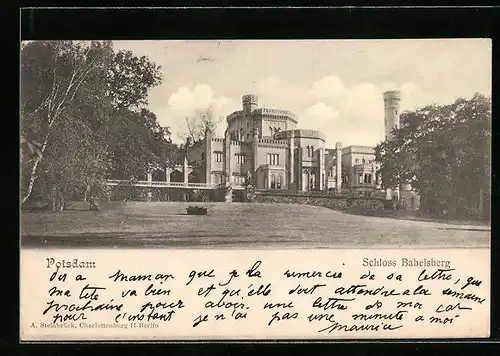 Potsdam
Schloss Babelsberg
Dis a maman que je la remercie de sa lettre, que
ma tête va bien et qu'elle doit attendre à la semaine
prochaine pour avoir une lettre de moi car
pour l'instant je n'ai pas une minute a moi
Maurice
A. Steinbrück, Charlottenburg II-Berlin